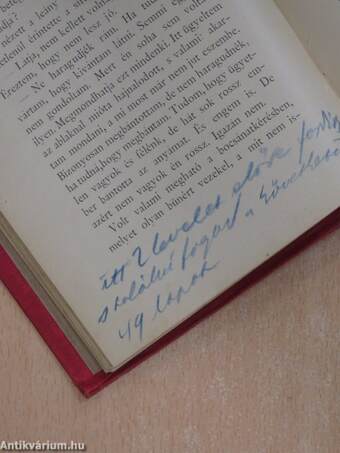 nézett a leány
dja?
— Látja, nem kellett volna
etlenül érintette
Éreztem, hogy nem lesz jó.
— Ne haragudjék rám. Ha tu
vártam, hogy kívántam látni. Semmi egy
nem gondoltam. Mert én soha nem volt
ilyen. Megmondhatja ezt mindenki. Itt ügyeltem
az ablaknál mióta hajnalodott, s valami akar-
tam mondani, a mi most már nem jut eszembe.
Bizonyosan megbántottam, de nem haragudnék,
ha tudni, hogy megbántam. Tudom, hogy ügyet-
len vagyok és félénk, de hát sok rossz em-
ber bántotta az anyámat. És engem is. De
azért nem vagyok én rossz. Igazán nem.
Volt valami meghatottság a bocsánatkérésben,
melyet olyan bűnért vezekel, a mit nem is-
itt 2 levelet előre
található a következő
49 lapok
Antikvárium.hu